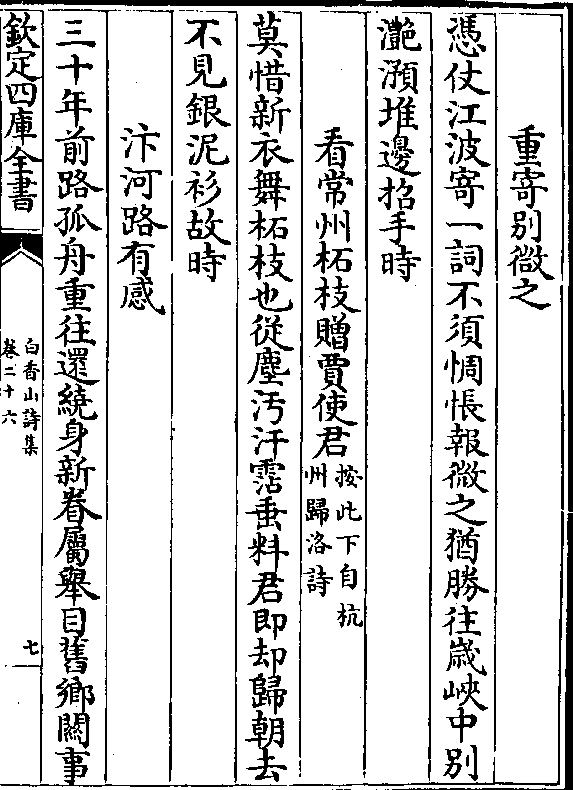 重寄别微之
憑仗江波寄一詞不須惆悵報微之猶勝往嵗峽中别
灔澦堆邊招手時
看常州柘枝贈賈使君
按此下自杭
州歸洛詩
莫惜新衣舞柘枝也從塵汚汗霑垂料君即却歸朝去
不見銀泥衫故時
汴河路有感
三十年前路孤舟重往還繞身新眷屬舉目舊鄉闗事
欽定四庫全書
白香山詩集
卷二十六
七